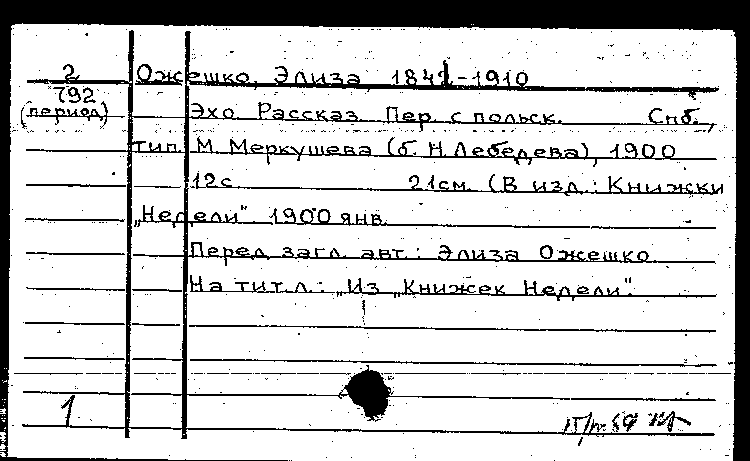 2
792
(период)
Ожешко, Элиза, 1841-1910
Эхо. Рассказ. Пер. с польск. Спб.,
тип. М. Меркушева (б. Н. Лебедева), 1900
12с. 21см. (В изд.: Книжки
„Недели". 1900 янв.
Перед загл. авт.: Элиза Ожешко.
На тит. л.: „Из „Книжек Недели".
1